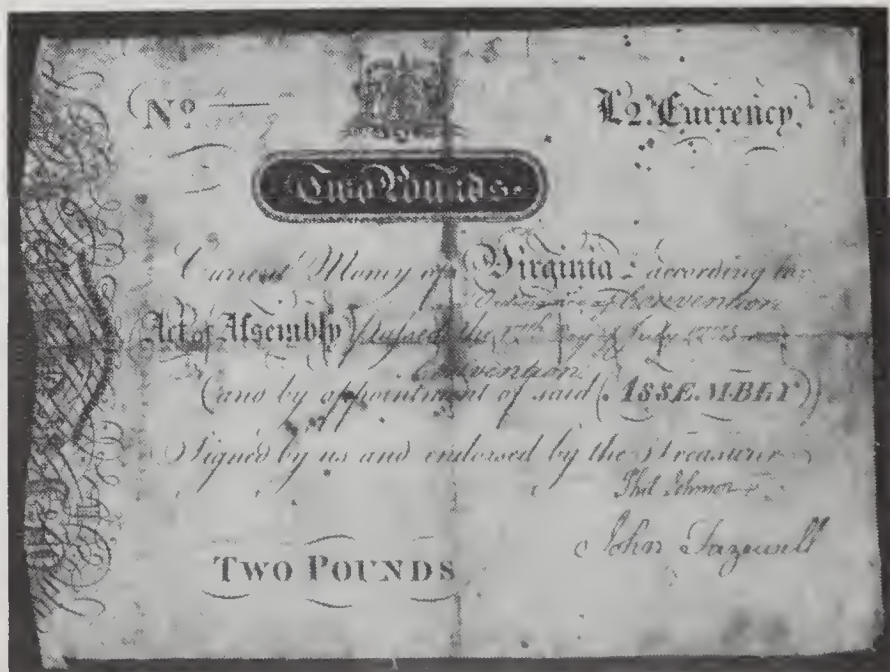 No
L2. Currency.
Two Pounds.
Current Money of Virginia according to
Ordinance of Convention
Act of Assembly passed the 17th day of July 1775
Convention
(and by appointment of said (ASSEMBLY))
Signed by us and endorsed by the Treasurer
Phil Johnson
John Tazewell
TWO POUNDS